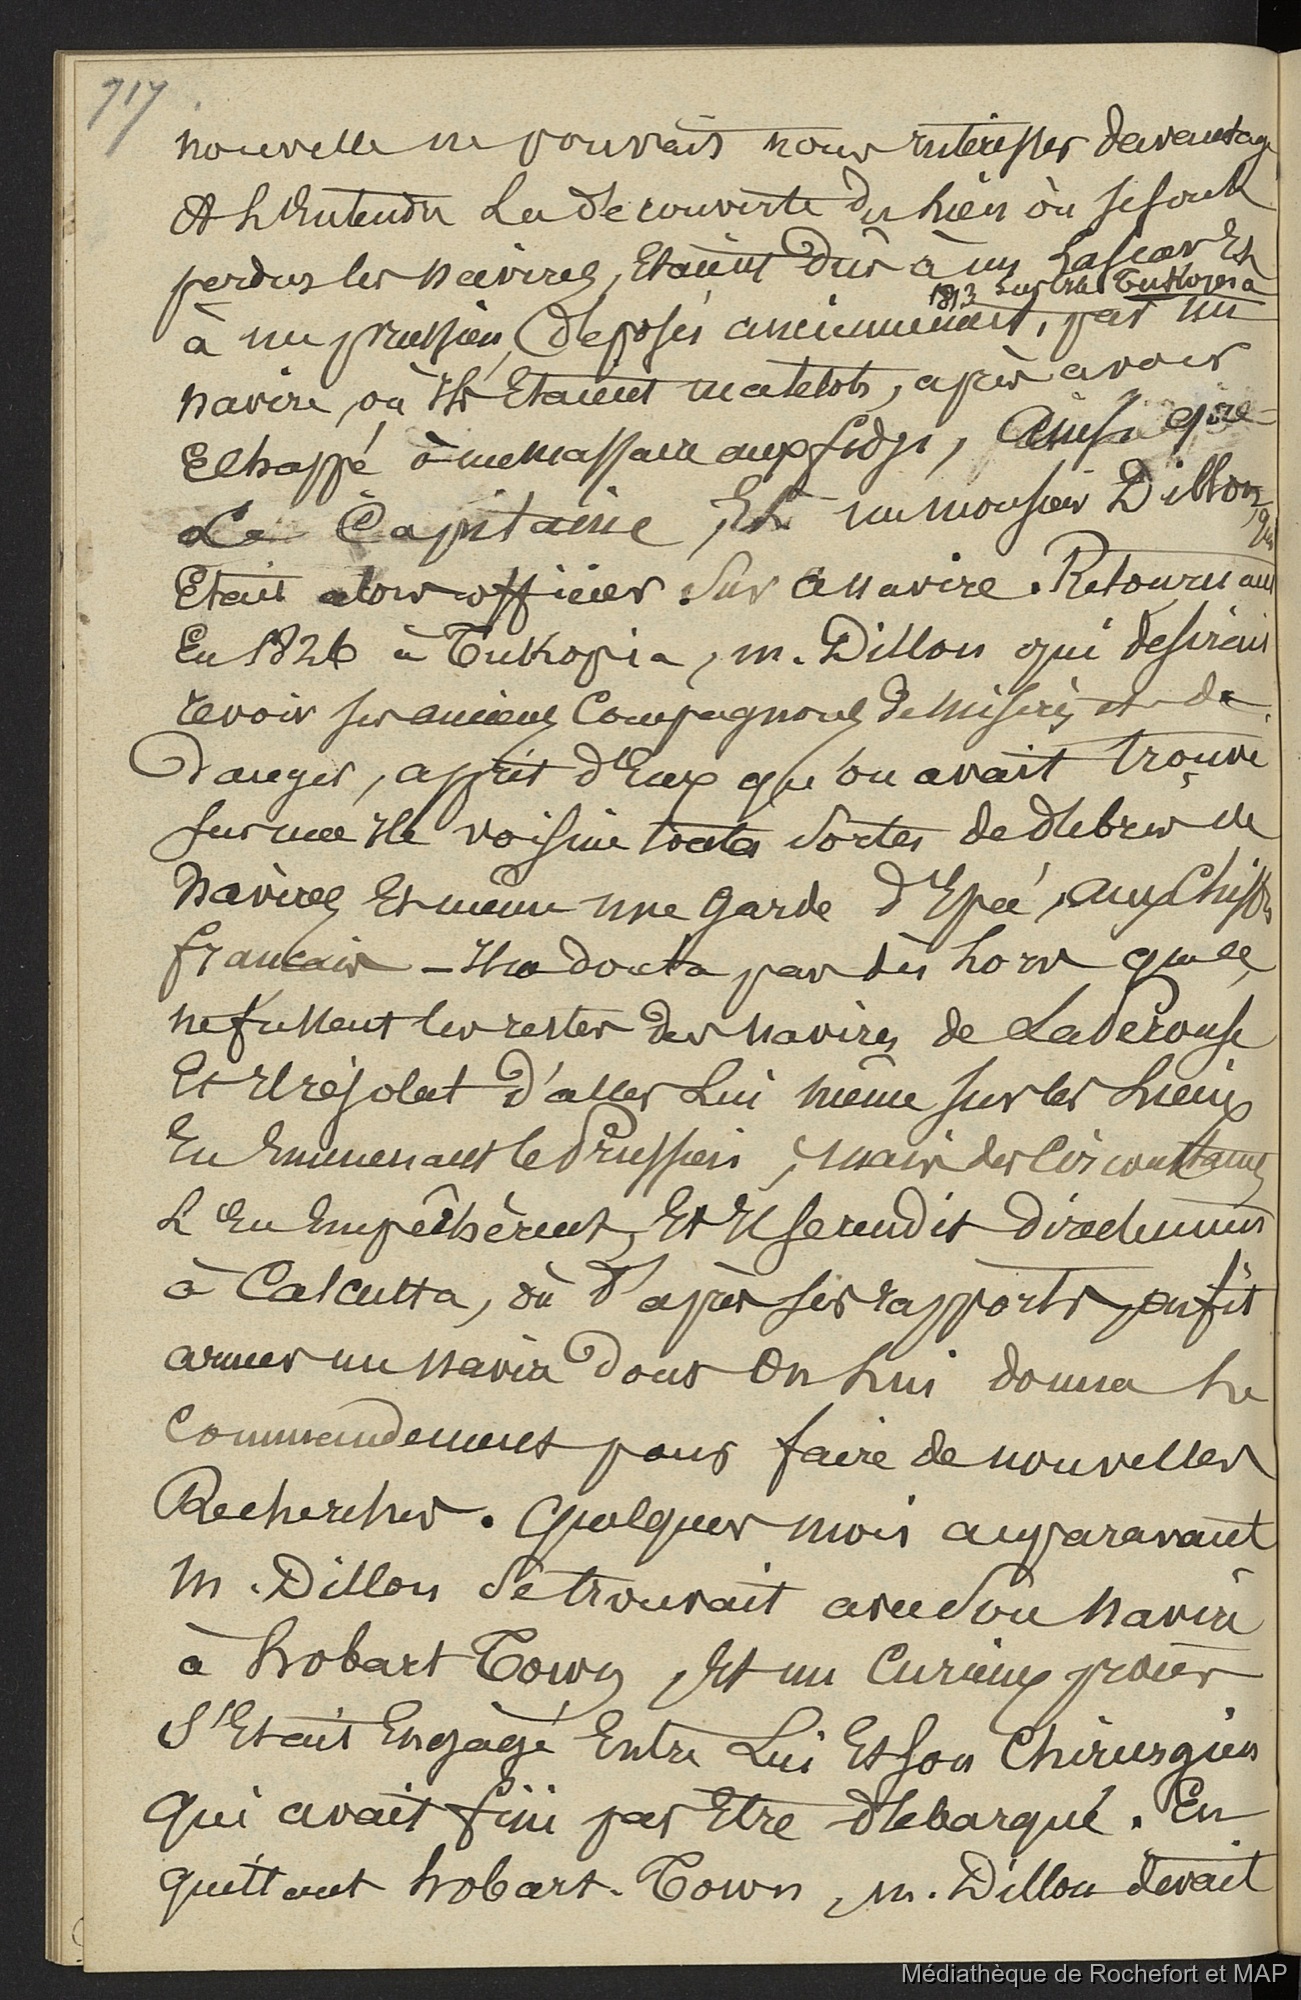 717
nouvelle ne pouvait nous intéresser davantage
A L'Entendre La découverte du Lieu où se sont
perdus les navires, Etaient dûs à un Lascar Et
1813 sur île Tukopia
à un prussien, déposés anciennement, par un
navire, où Ils Etaient matelots, après avoir
Echappé à un massacre aux fidgi, Ainsi que
Le Capitaine, Et un monsieur Dillon, qui
Etait alors officier sur ce navire. Retournant
En 1826 à Tukopia, m. Dillon qui desirait
revoir ses anciens Compagnons de misères et de
Danger, apprit d'Eux qu'on avait trouvé
sur une Ile voisine toutes sortes de débris de
navires Et même une garde d'Epée, aux Chiffres
français - Il ne douta pas dès lors qu'elles
ne fussent les restes des navires de LaPérouse
Et Il résolut d'aller Lui même sur les Lieux
En Emmenant le Prussien, mais des Circonstances
L'En Empêchèrent, Et Il se rendit directement
à Calcutta, où d'après ses rapports, on fit
armer un navire dont On Lui donna Le
Commandement pour faire de nouvelles
Recherches. Quelques mois auparavant
M. Dillon se trouvait avec son navire
à hobart Town, Et un Curieux procès
S'Etait Engagé Entre Lui Et son Chirurgien
qui avait fini par Etre débarqué. En
quittant hobart-Town, m. Dillon devait
Médiathèque de Rochefort et MAP